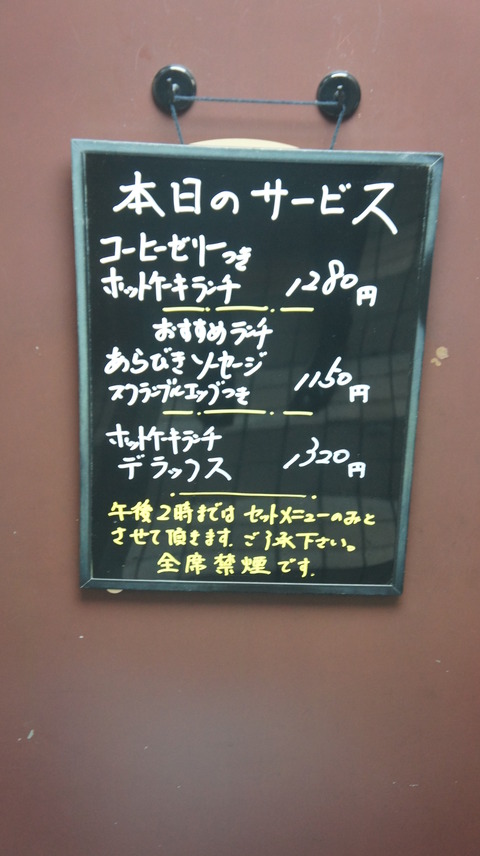 本日のサービス
コーヒーゼリーつき
ホットケーキランチ 1280円
おすすめランチ
あらびきソーセージ
スクランブルエッグつき 1150円
ホットケーキランチ
デラックス 1320円
午後2時までは セットメニューのみと
させて頂きます。ご了承下さい。
全席禁煙です。